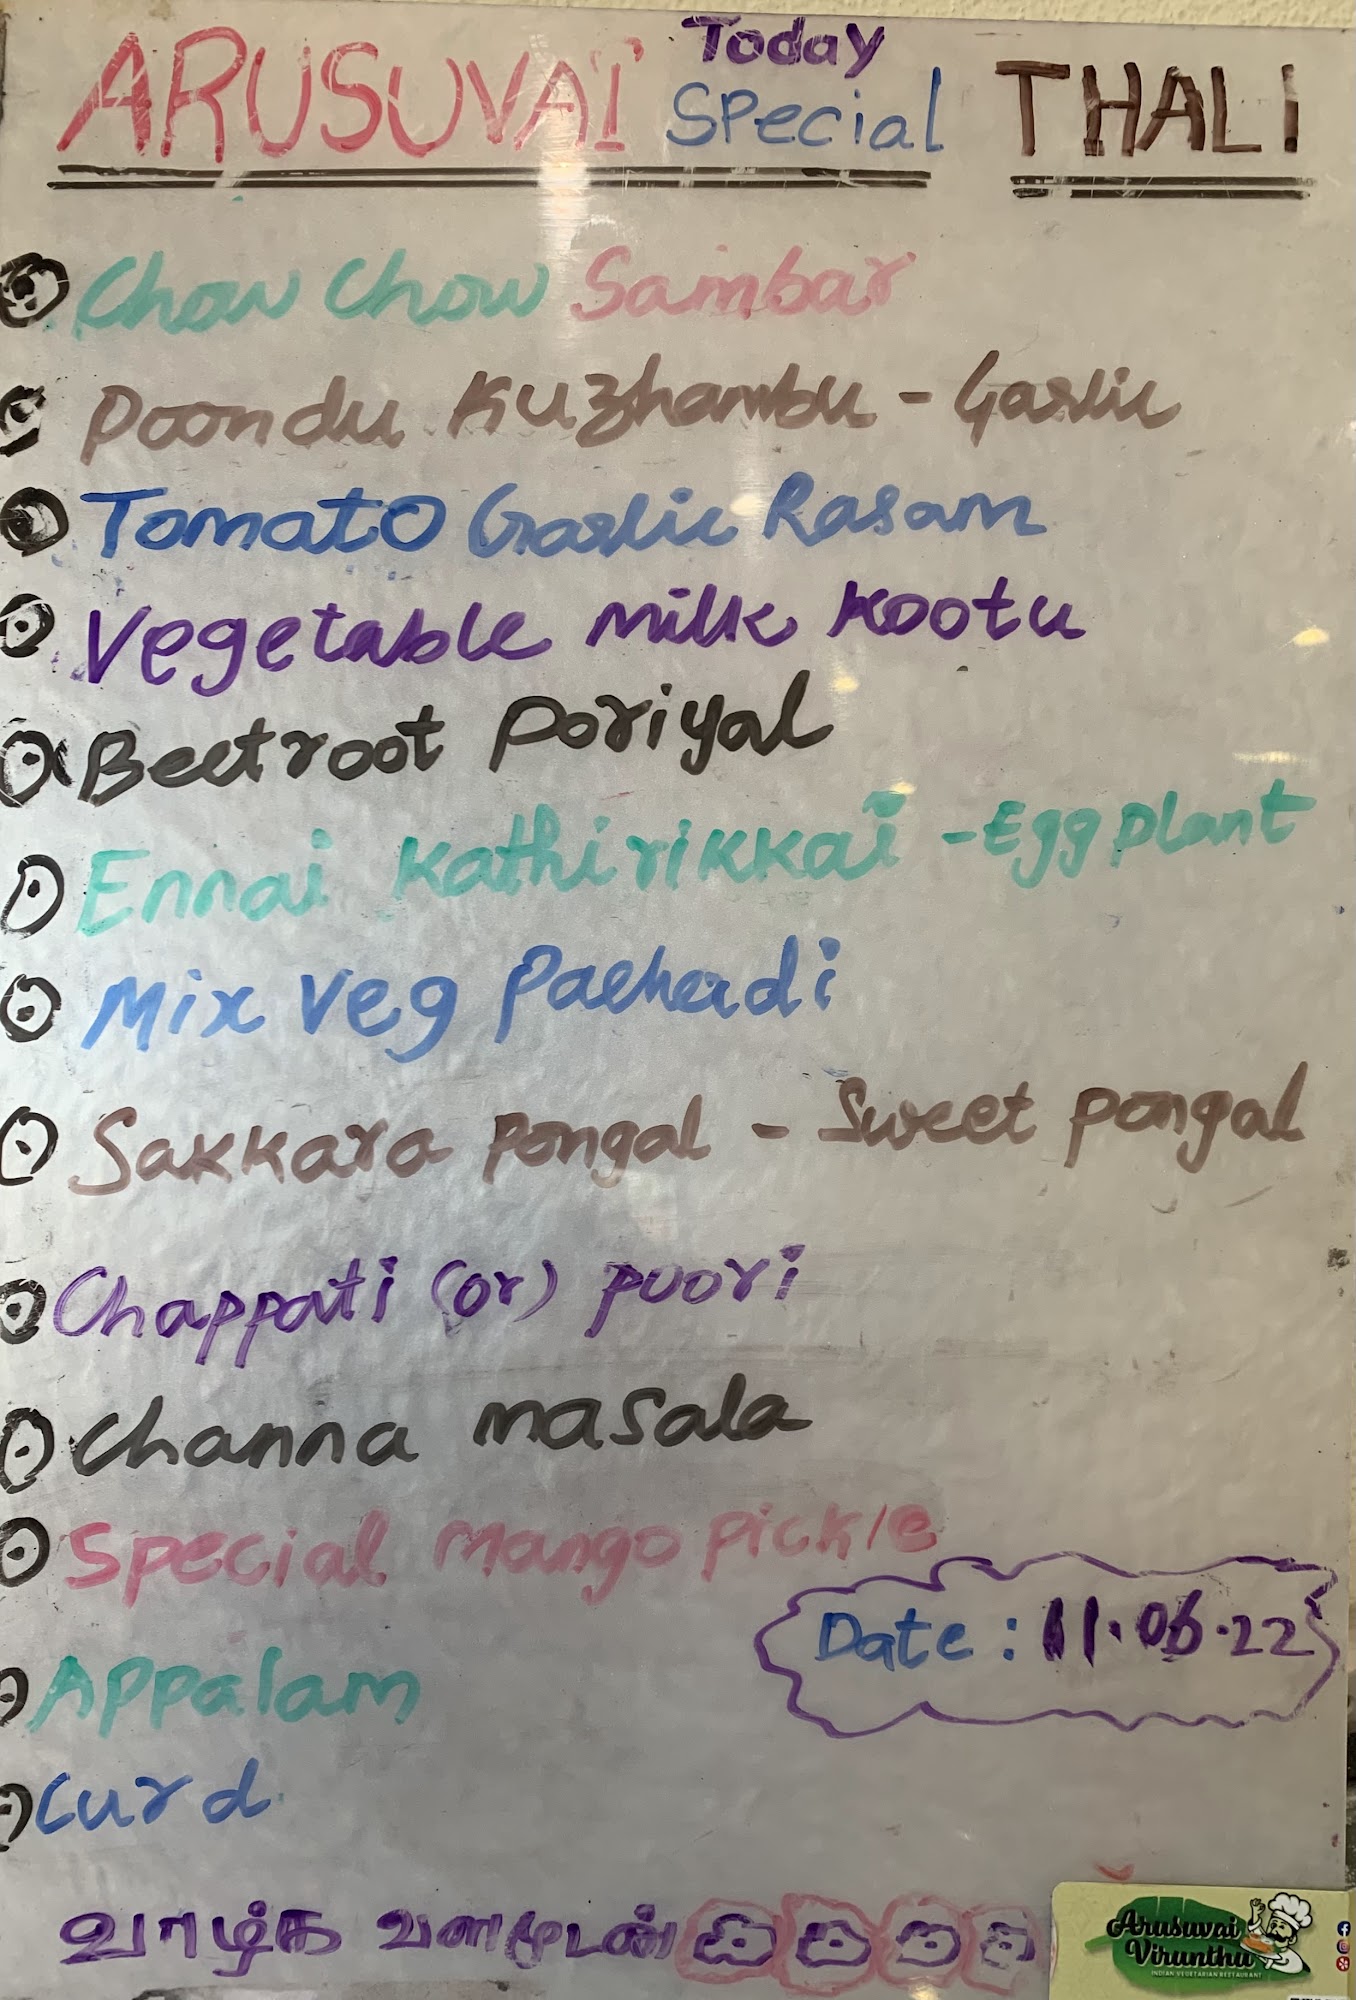 ARUSUVAI Today Special THALI
Chow Chow Sambar
Poondu Kuzhambu - Garlic
Tomato Garlic Rasam
Vegetable Milk Kootu
Beetroot Poriyal
Ennai Kathirikkai - Egg plant
Mix Veg Pachadi
Sakkara Pongal - Sweet Pongal
Chappati (or) Puori
Channa Masala
Special Mango Pickle
Date : 11.06.22
Appalam
Curd
வாழ்க வளமுடன்
Arusuvai
Virunthu
INDIAN VEGETARIAN RESTAURANT